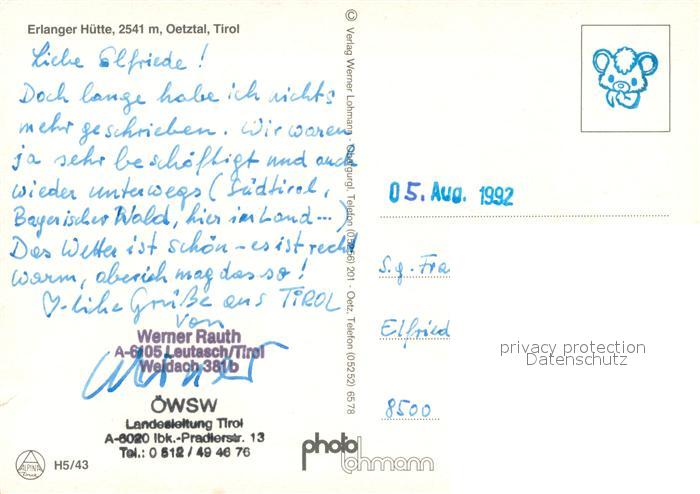 Erlanger Hütte, 2541 m, Oetztal, Tirol
Liebe Elfriede !
Doch lange habe ich nichts
mehr geschrieben. Wir waren
ja sehr beschäftigt und auch
wieder unterwegs (Südtirol,
Bayerischer Wald, hier im Land...)
Das Wetter ist schön - es ist recht
warm, aber ich mag das so !
♡-liche Grüße aus TIROL
von
Werner Rauth
A-6105 Leutasch/Tirol
Weidach 381b
Werner
ÖWSW
Landesleitung Tirol
A-6020 Ibk.-Pradlerstr. 13
Tel.: 0 512 / 49 46 76
ALPINA
H5/43
© Verlag Werner Lohmann, Obergurgl, Telefon (05256) 201 - Oetz, Telefon (05252) 6578
photo
lohmann
05. Aug. 1992
S.g. Fra
Elfried
8500
privacy protection
Datenschutz